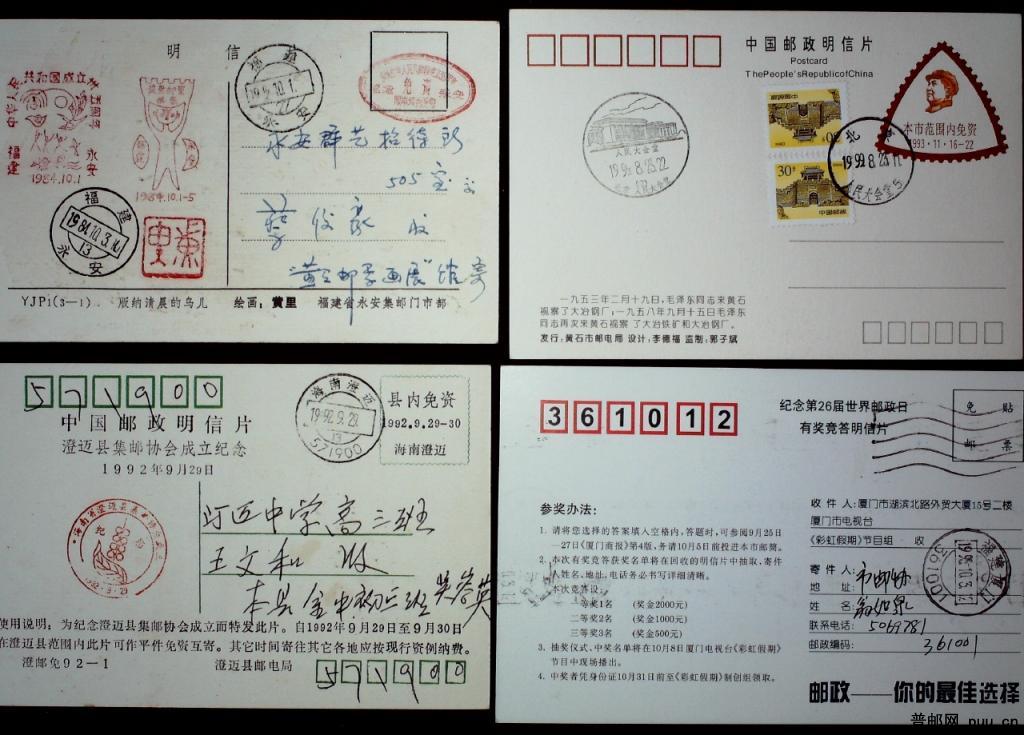 明 信
福建
1984.10.1
永安
免 资
中华人民共和国成立
福建
永安
1984.10.1
1984.10.1-5
福建
1984.10.3.14
13
永安
永安群艺
505室
蔡俊豪 收
YJP1(3—1). 版纳清晨的鸟儿 绘画: 黄里 福建省永安集邮门市部
中国邮政明信片
Postcard
ThePeople'sRepublicofChina
本市范围内免资
1993·11·16-22
人民大会堂
1999.8.23.22
北京
1999.8.23.11
人民大会堂5
30分
中国邮政
一九五三年二月十九日,毛泽东同志来黄石
视察了大冶钢厂;一九五八年九月十五日毛泽东
同志再次来黄石视察 了大冶铁矿和大冶钢厂。
发行:黄石市邮电局 设计:李德福 监制:郭子斌
571900
中国邮政明信片
澄迈县集邮协会成立纪念
1992年9月29日
海南澄迈
1992.9.29.
13
571900
县内免资
1992.9.29-30
海南澄迈
1992·9·29
中学高三班
王文和 收
本县金中初二班
使用说明: 为纪念澄迈县集邮协会成立而特发此片。自1992年9月29日至9月30日
在澄迈县范围内此片可作平件免资互寄。其它时间寄往其它各地应按现行资例纳费。
澄邮免92—1 澄迈县邮电局
571900
361012
纪念第26届世界邮政日
有奖竞答明信片
免 贴
邮 票
参奖办法:
1. 请将您选择的答案填入空格内,答题时,可参阅9月25日
—27日《厦门商报》第4版,务请10月5日前投进本市邮筒。
2. 本次有奖竞答获奖名单将在回收的明信片中抽取,寄件
人姓名、地址、电话务必书写详细清晰。
本次竞答设:
一等奖1名 (奖金2000元)
二等奖2名 (奖金1000元)
三等奖3名 (奖金500元)
3. 抽奖仪式、中奖名单将在10月8日厦门电视台《彩虹假期》
节目中现场播出。
4. 中奖者凭身份证10月31日前至《彩虹假期》制创组领取。
收 件 人:厦门市湖滨北路外贸大厦15号二楼
厦门市电视台
《彩虹假期》节目组 收
寄 件 人:
地 址: 市邮协
姓 名:
联系电话: 5069781
邮政编码: 361001
361001
邮政——你的最佳选择
普邮网 puu.cn